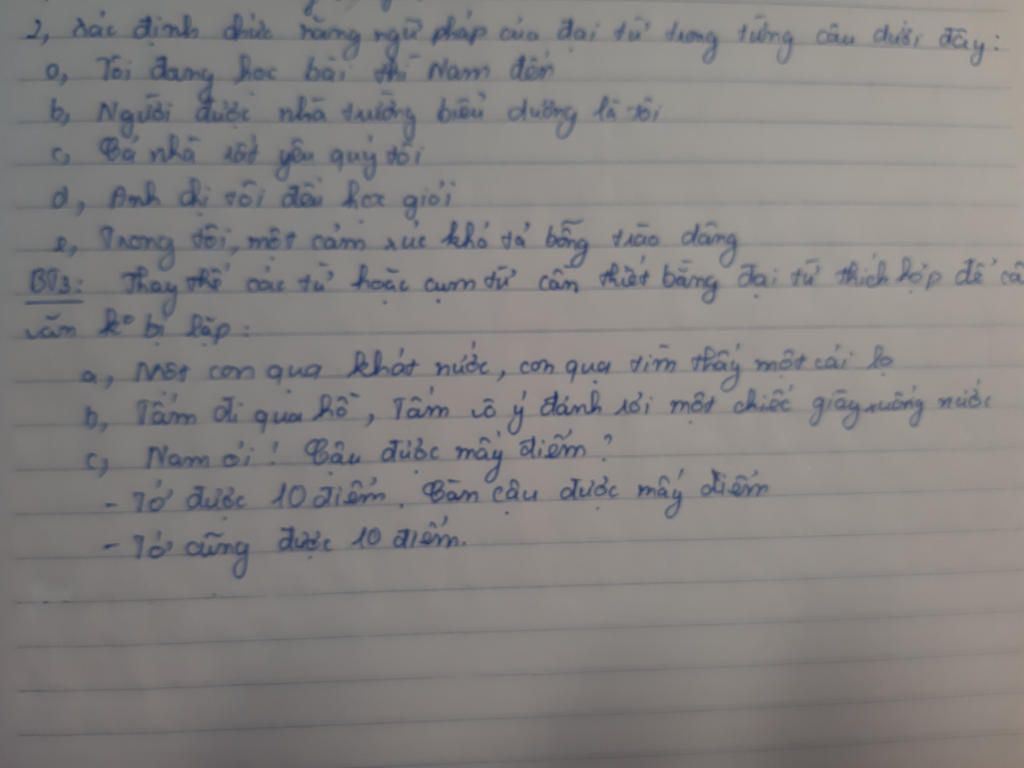 2, Xác định chức năng ngữ pháp của đại từ trong từng câu dưới đây:
a, Tôi đang học bài thì Nam đến
b, Người được nhà trường biểu dương là tôi
c, Cả nhà rất yêu quý tôi
d, Anh chị tôi đều học giỏi
e, Trong tôi, một cảm xúc khó tả bỗng trào dâng
BT3: Thay thế các từ hoặc cụm từ cần thiết bằng đại từ thích hợp để câ
văn ko bị lặp:
a, Một con quạ khát nước, con quạ tìm thấy một cái lọ
b, Tấm đi qua hồ, Tấm vô ý đánh rơi một chiếc giày xuống nước
c, Nam ơi! Cậu được mấy điểm?
- Tớ được 10 điểm. Còn cậu được mấy điểm
- Tớ cũng được 10 điểm.